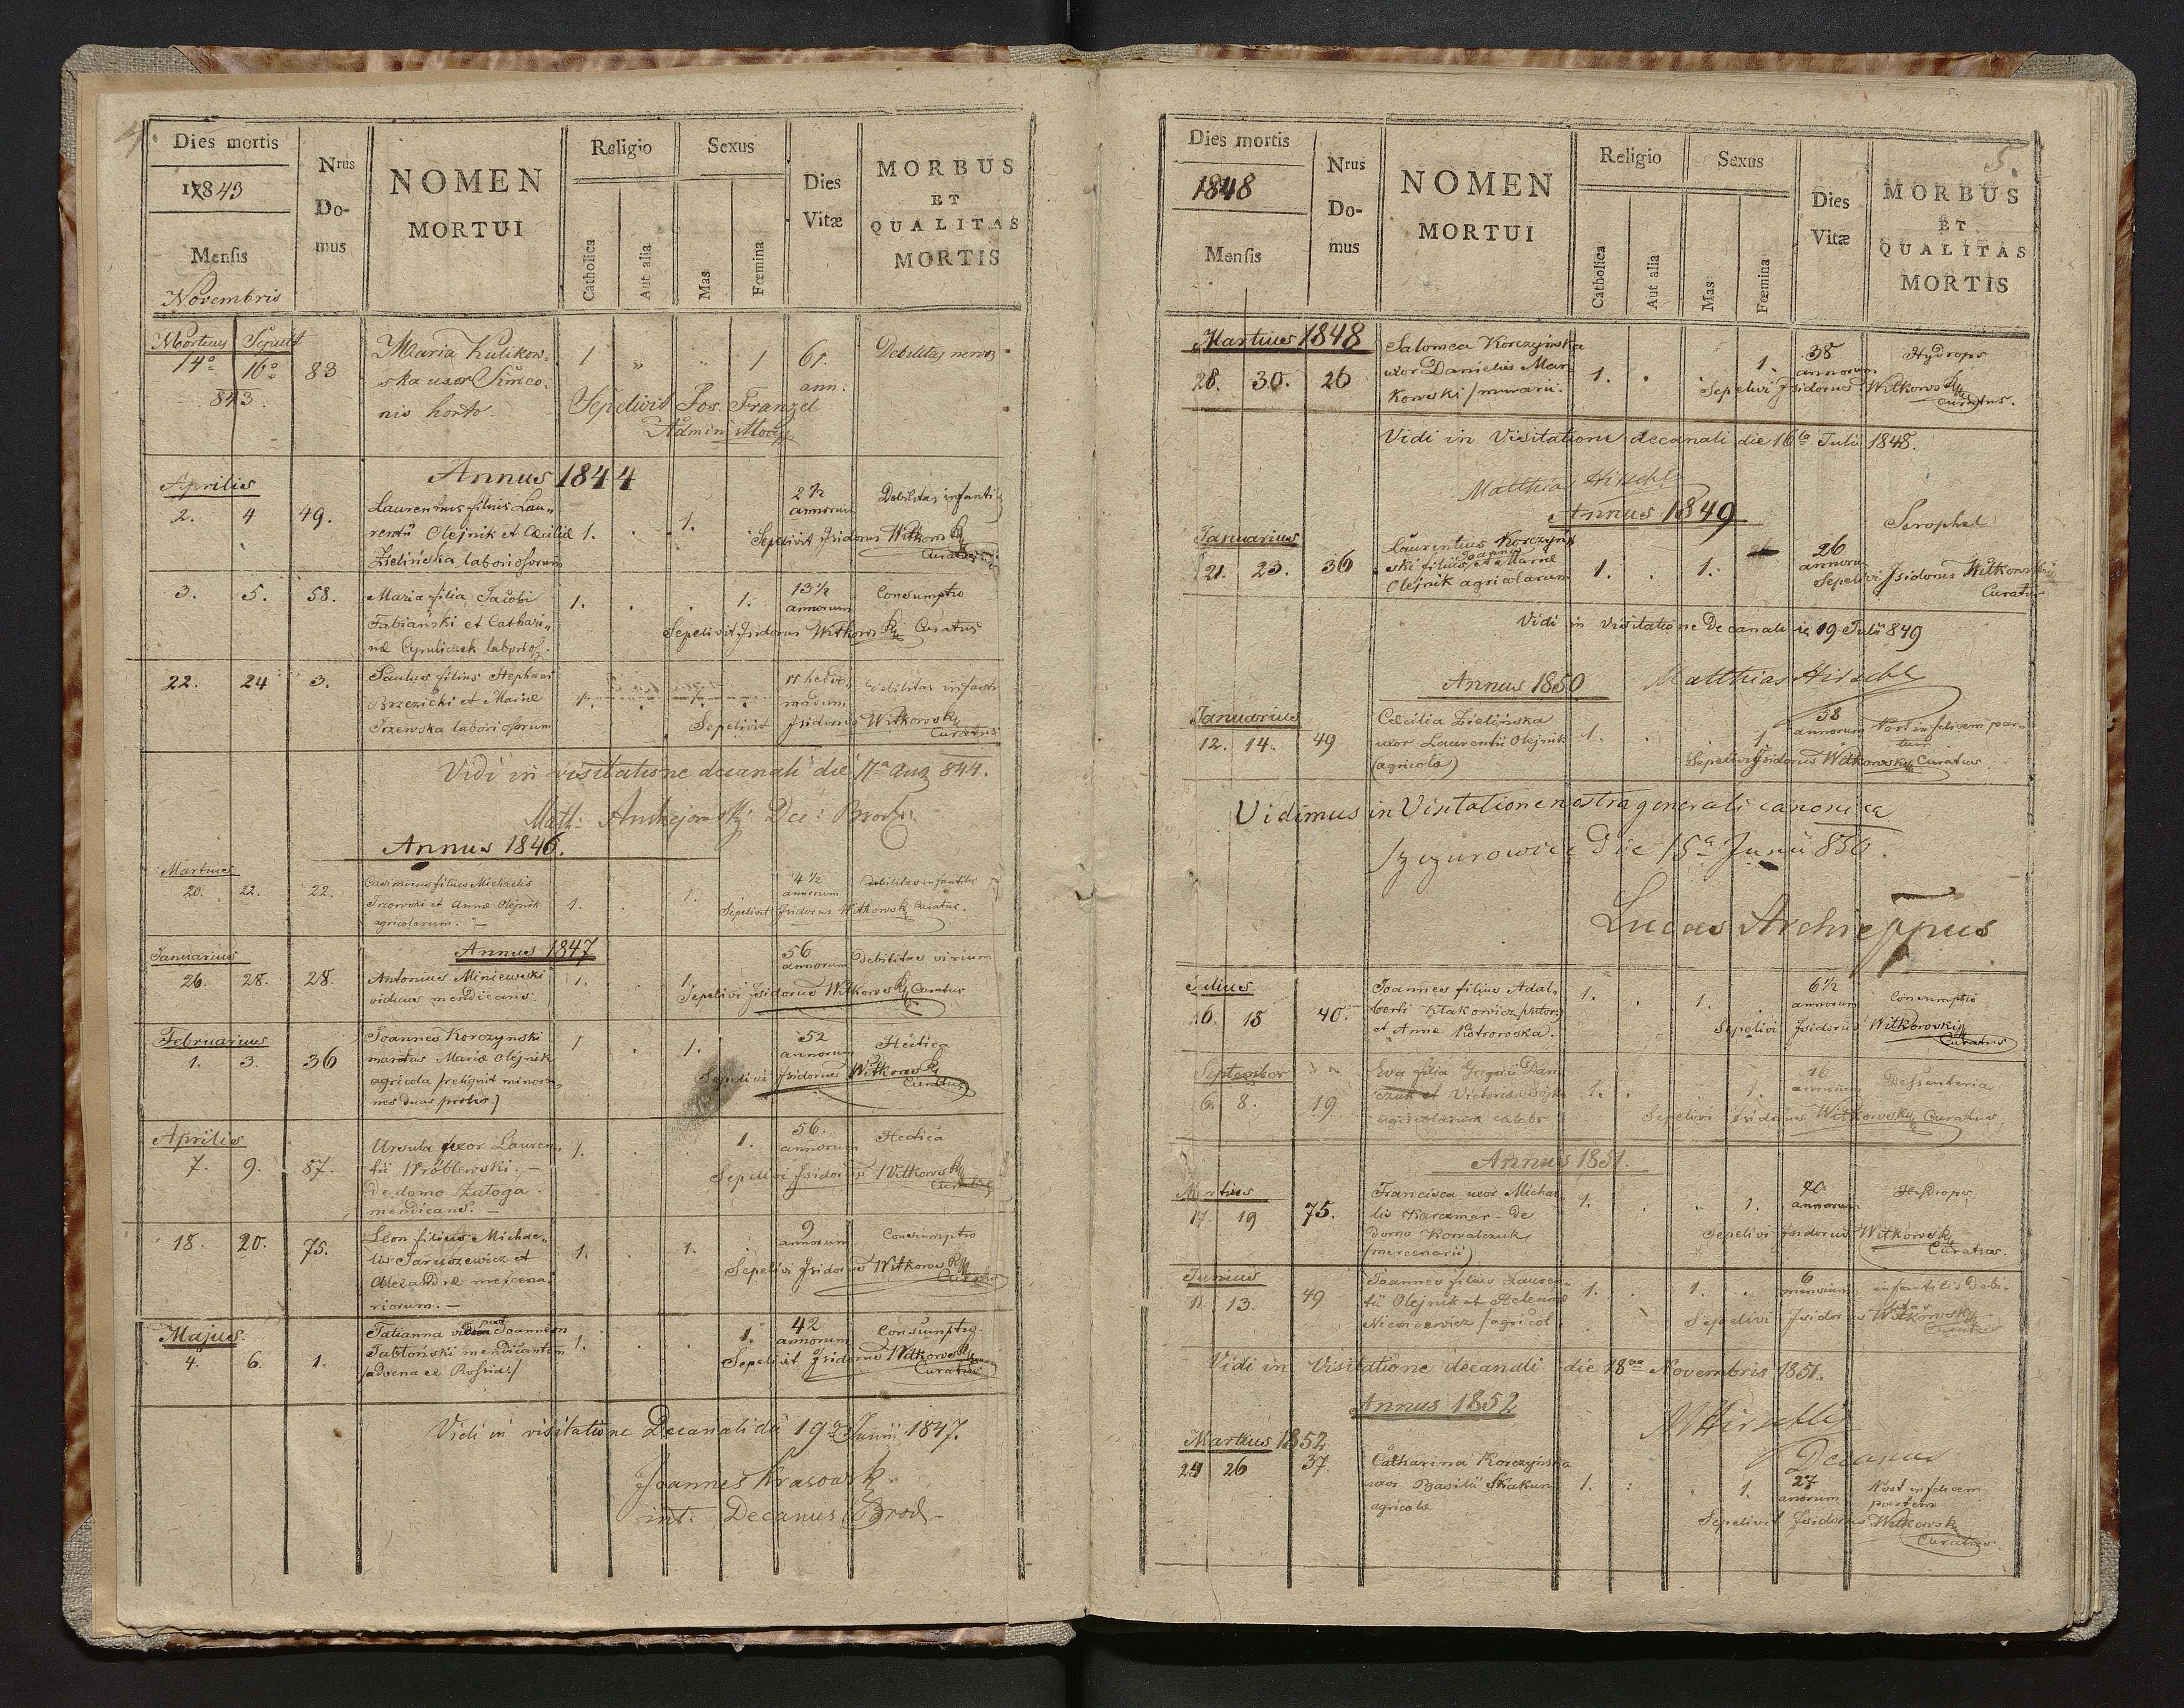 4.
Dies mortis
1843
Mensis
Novembris
Nrus
Do-
mus
NOMEN
MORTUI
Religio
Catholica
Aut alia
Sexus
Mas
Fœmina
Dies
Vitæ
MORBUS
ET
QUALITAS
MORTIS
Mortuus Sepult
14º 16º 83 Maria Kulikow- 1 „ „ 1 61. Debilitas
843. ska uxor Simeo- ann.
nis horto.
Sepelivit Jos. Franzel
Annus 1844
Aprilis
2. 4 49. Laurentius filius Lau- 1. . 1. . 2½ annorum Debilitas infantil
rentii Olejnik et Cæciliæ
Zielińska laboriosorum
Sepelivit Isidorus Witkowski
Curatus
3. 5. 58. Maria filia Jacobi 1. . . 1. 13½ annorum Consumptio
Fabiański et Cathari-
næ Cyruliczek laborios.
Sepelivit Isidorus Witkowski Curatus
22. 24 3. Paulus filius Stephani
Brzezicki et Mariæ
laboriosorum
debilitas infanti
Sepelivit Isidorus Witkowski
Curatus
Vidi in visitatione decanali die 17ª Aug 844.
Annus 1846.
Martius
20. 22. 22. Casimirus filius Michaelis 1. . 1. 4½ annorum debilitas infantilis
et Annæ Olejnik
agricolarum.
Sepelivit Isidorus Witkowski Curatus.
Annus 1847
Januarius
26. 28. 28. Antonius Miniewski 1. . 1. 56 annorum Debilitas virium
viduus mendicans.
Sepelivi Isidorus Witkowski Curatus
Februarius
1. 3. 36 Joannes Korczynski 1 . 1. . 52 annorum Hectica
maritus Mariæ Olejnik
agricola /reliquit minoren-
nes duas proles./
Sepelivi Isidorus Witkowski
Curatus
Aprilis
7. 9. 87. Ursula uxor Lauren- 1. . . 1. 56. annorum Hectica
tii Wróblewski. -
de domo Załoga.
mendicans. -
Sepelivi Isidorus Witkowski
Curatus
18. 20. 75. Leon filius Michae- 1. . 1. . 9 annorum Consumptio
lis Jaruszewicz et
Alexandræ mercena-
riorum. -
Sepelivi Isidorus Witkowski
Curatus
Majus.
4. 6. 1. Tatianna Joannem 1. . . 1. 42 annorum Consumptio.
Jabłoński mendicantem
/advena ex
Sepelivit Isidorus Witkowski
Curatus
Vidi in visitatione Decanali die 19ª Junii 1847.
Joannes Krasowsk
int. Decanus Brod
5.
Dies mortis
1848
Mensis
Nrus
Do-
mus
NOMEN
MORTUI
Religio
Catholica
Aut alia
Sexus
Mas
Fœmina
Dies
Vitæ
MORBUS
ET
QUALITAS
MORTIS
Martius 1848
28. 30. 26 Salomea Korczyńska 1. . . 1. 38 annorum Hydrops
uxor Danielis Mar-
kowski /murarii.
Sepelivi Isidorus Witkowski
Curatus.
Vidi in Visitatione decanali die 16ta Julii 1848.
Matthias Hirschle
Annus 1849
Januarius
21. 23. 36 Laurentius Korczyn- 1. . 1. 26 annorum Scrophel
ski filius Joannis et Mariæ
Olejnik agricolarum
Sepelivi Isidorus Witkowski
Curatus
Vidi in visitatione Decanali 19 Julii 849
Matthias Hirschle
Annus 1850
Januarius
12. 14. 49 Cæcilia Zielińska 1. . . 1 38 annorum Post infelicem par-
uxor Laurentii Olejnik tum
(agricola)
Sepelivi Isidorus Witkowski Curatus
Vidimus in Visitatione nostra generali canonica
Szczurowice Die 15ª Junii 850.
Lucas Archieppus
Julius
16. 18 40. Joannes filius Adal- 1. . 1. 6½ annorum Consumptio
berti
et Annæ Piotrowska.
Sepelivi Isidorus Witkowski
Curatus
September
6. 8. 19 Eva filia Gregorii 1. . . 1. 16 annorum Dessenteria
et Victoriæ
agricolarum
Sepelivi Isidorus Witkowski Curatus
Annus 1851.
Martius
17. 19 75. Francisca uxor Michae- 1. . „ 1. 70 annorum Hydrops
lis Karczmar de
domo Kowalczuk
(mercenarii)
Sepelivi Isidorus Witkowski
Curatus.
Junius
11. 13. 49 Joannes filius Lauren- 1. . 1. „ 6 mensium infantilis Debi-
tii Olejnik et Helenæ litas
Niemcewicz /agricol.
Sepelivi Isidorus Witkowski
Curatus
Vidi in Visitatione decanali die 18va Novembris 1851.
MHirschle
Decanus
Annus 1852
Martius 1852
24 26 37 Catharina Korczyńska 1. : . 1. 27 annorum Post infelicem
uxor Basilii Skakun partum
agricolæ
Sepelivit Isidorus Witkowski
Curatus.